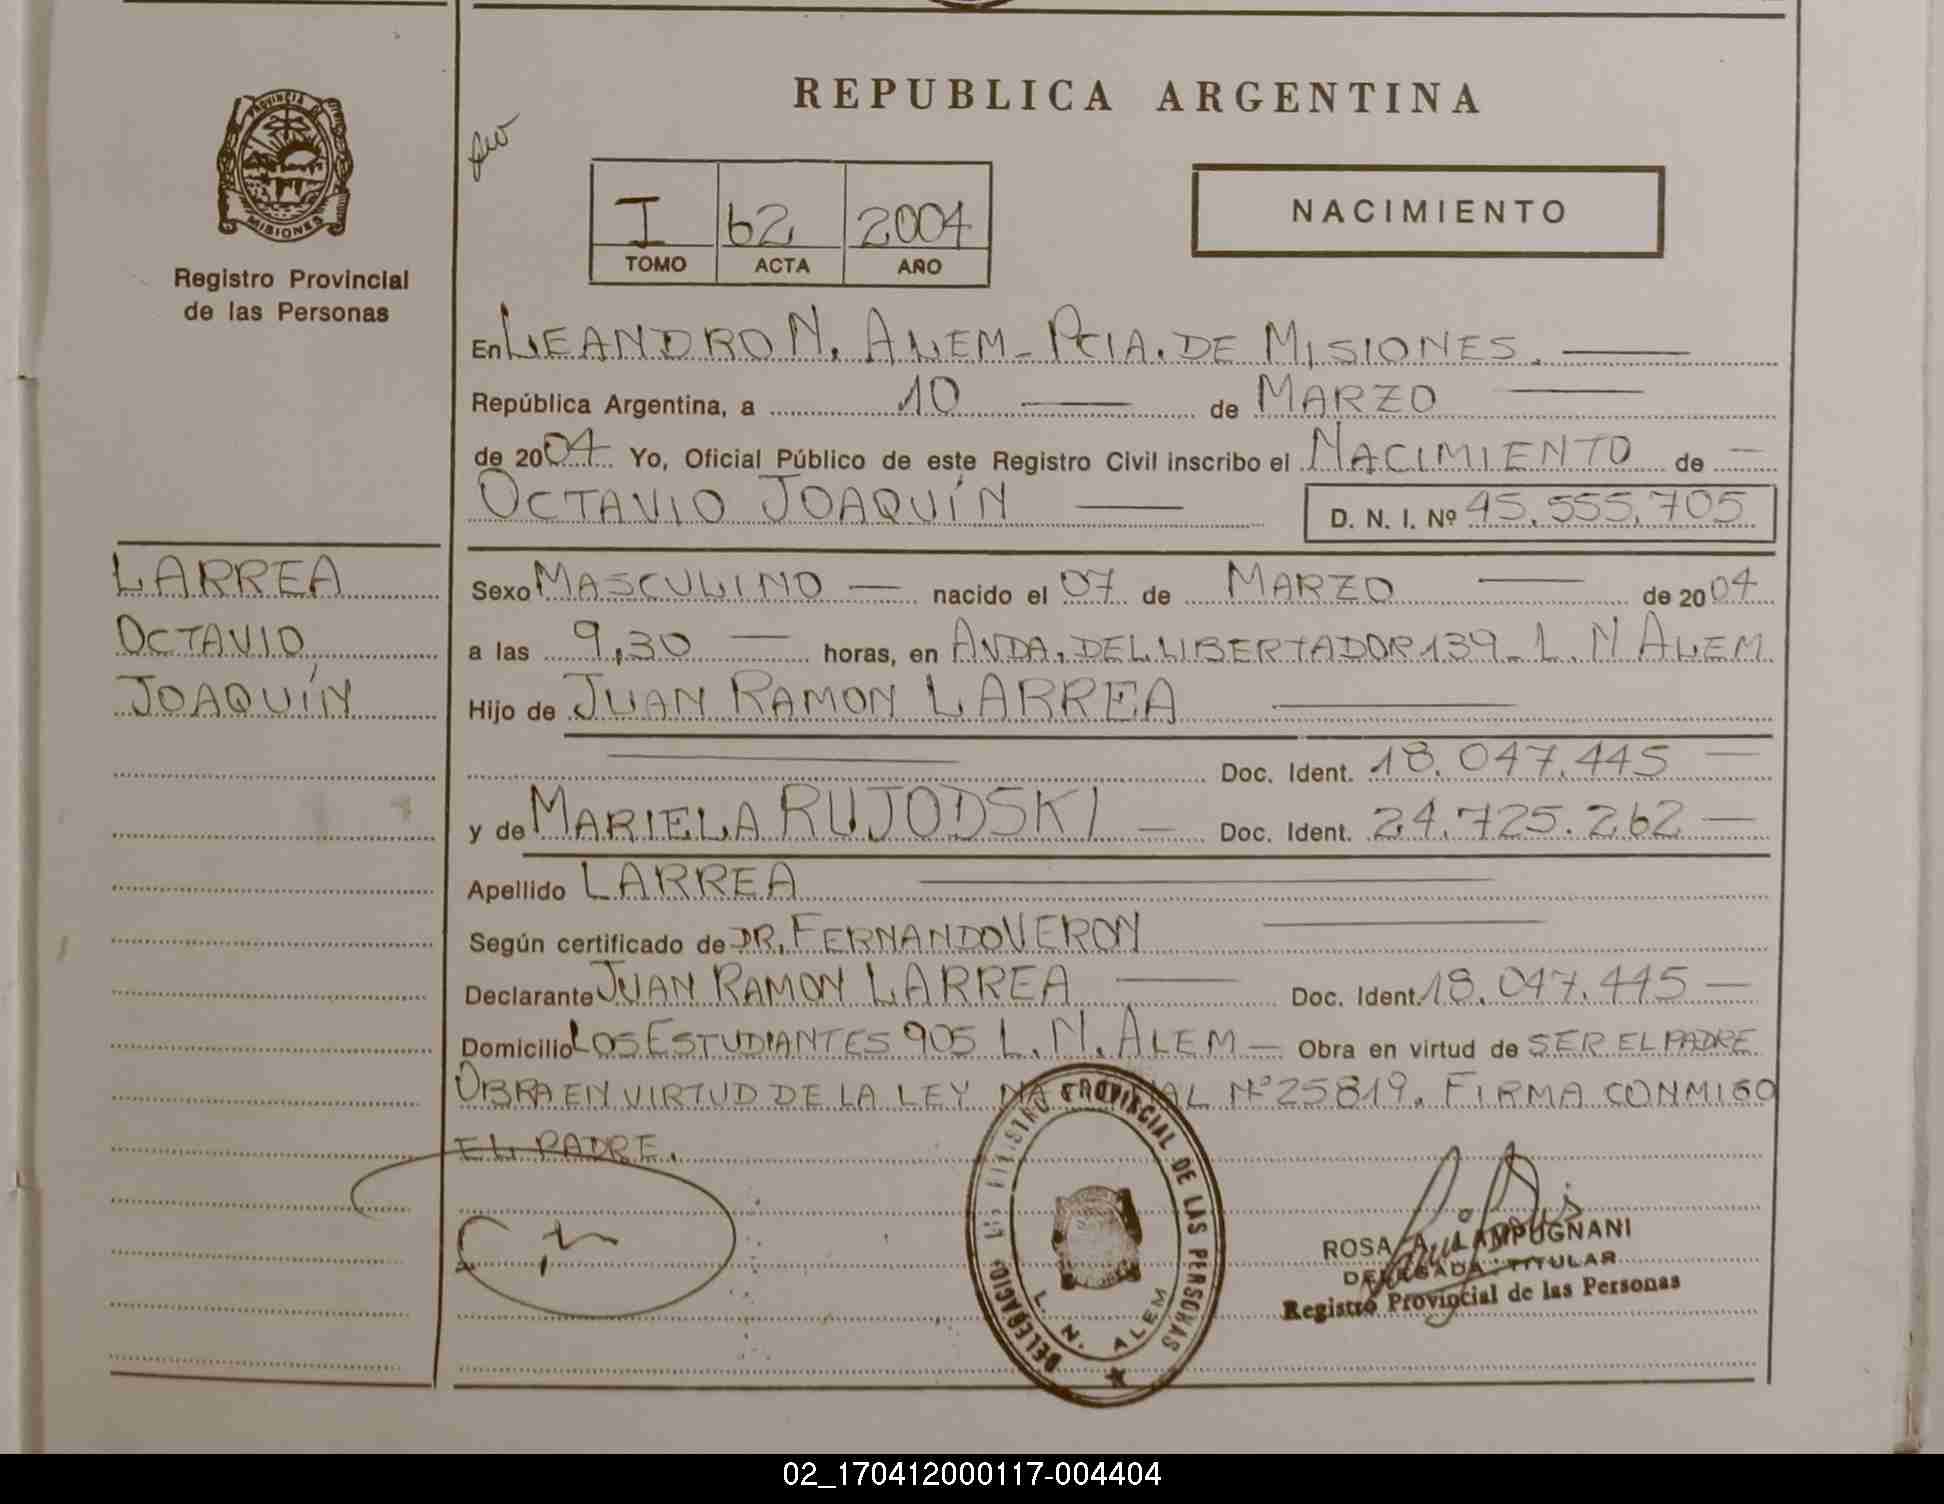 REPUBLICA ARGENTINA
PROVINCIA DE
MISIONES
Registro Provincial
de las Personas
I 62 2004
TOMO ACTA AÑO
NACIMIENTO
En LEANDRO N. ALEM - PCIA. DE MISIONES.
República Argentina, a 10 de MARZO
de 2004 Yo, Oficial Público de este Registro Civil inscribo el NACIMIENTO de
OCTAVIO JOAQUÍN D. N. I. Nº 45.555.705
LARREA
OCTAVIO
JOAQUÍN
Sexo MASCULINO nacido el 07 de MARZO de 2004
a las 9,30 horas, en AVDA. DEL LIBERTADOR 139 - L. N ALEM
Hijo de JUAN RAMON LARREA
Doc. Ident. 18.047.445
y de MARIELA RUJODSKI Doc. Ident. 24.725.262
Apellido LARREA
Según certificado de DR. FERNANDO VERON
Declarante JUAN RAMON LARREA Doc. Ident. 18.047.445
Domicilio LOS ESTUDIANTES 905 L. N. ALEM Obra en virtud de SER EL PADRE
OBRA EN VIRTUD DE LA LEY NACIONAL Nº 25819. FIRMA CONMIGO
EL PADRE.
REGISTRO PROVINCIAL DE LAS PERSONAS
L. N. ALEM
ROSA A. LAMPUGNANI
DELEGADA TITULAR
Registro Provincial de las Personas
02_170412000117-004404